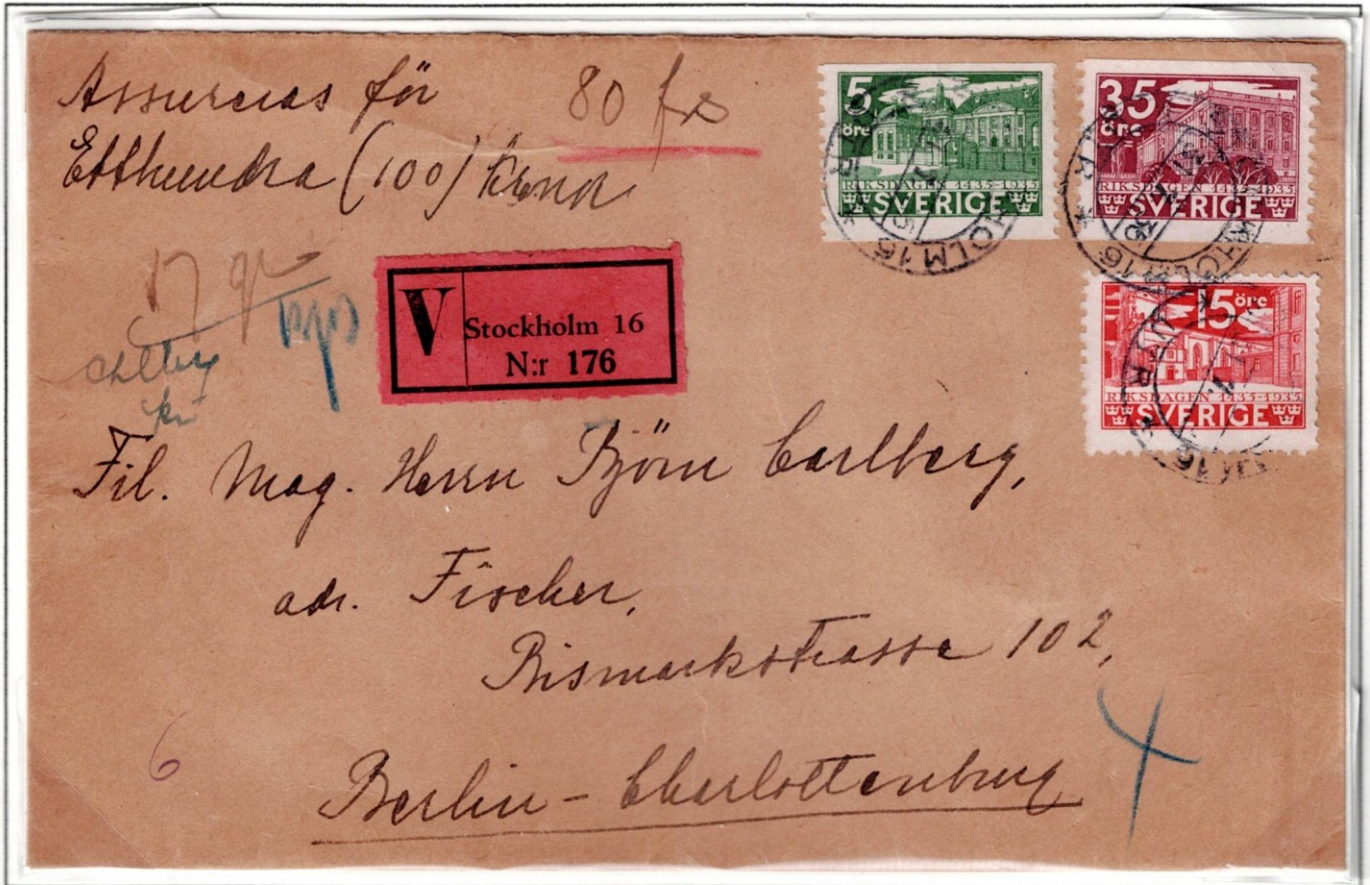 Assureras för 80 frs
Etthundra (100) kronor
17 gr
V
Stockholm 16
N:r 176
5
öre
RIKSDAGEN 1435-1935
SVERIGE
35
öre
RIKSDAGEN 1435-1935
SVERIGE
15 öre
RIKSDAGEN 1435-1935
SVERIGE
Fil. Mag. Herrn Björn Carlberg,
adr. Fischer,
Bismarkstrasse 102,
Berlin - Charlottenburg
6